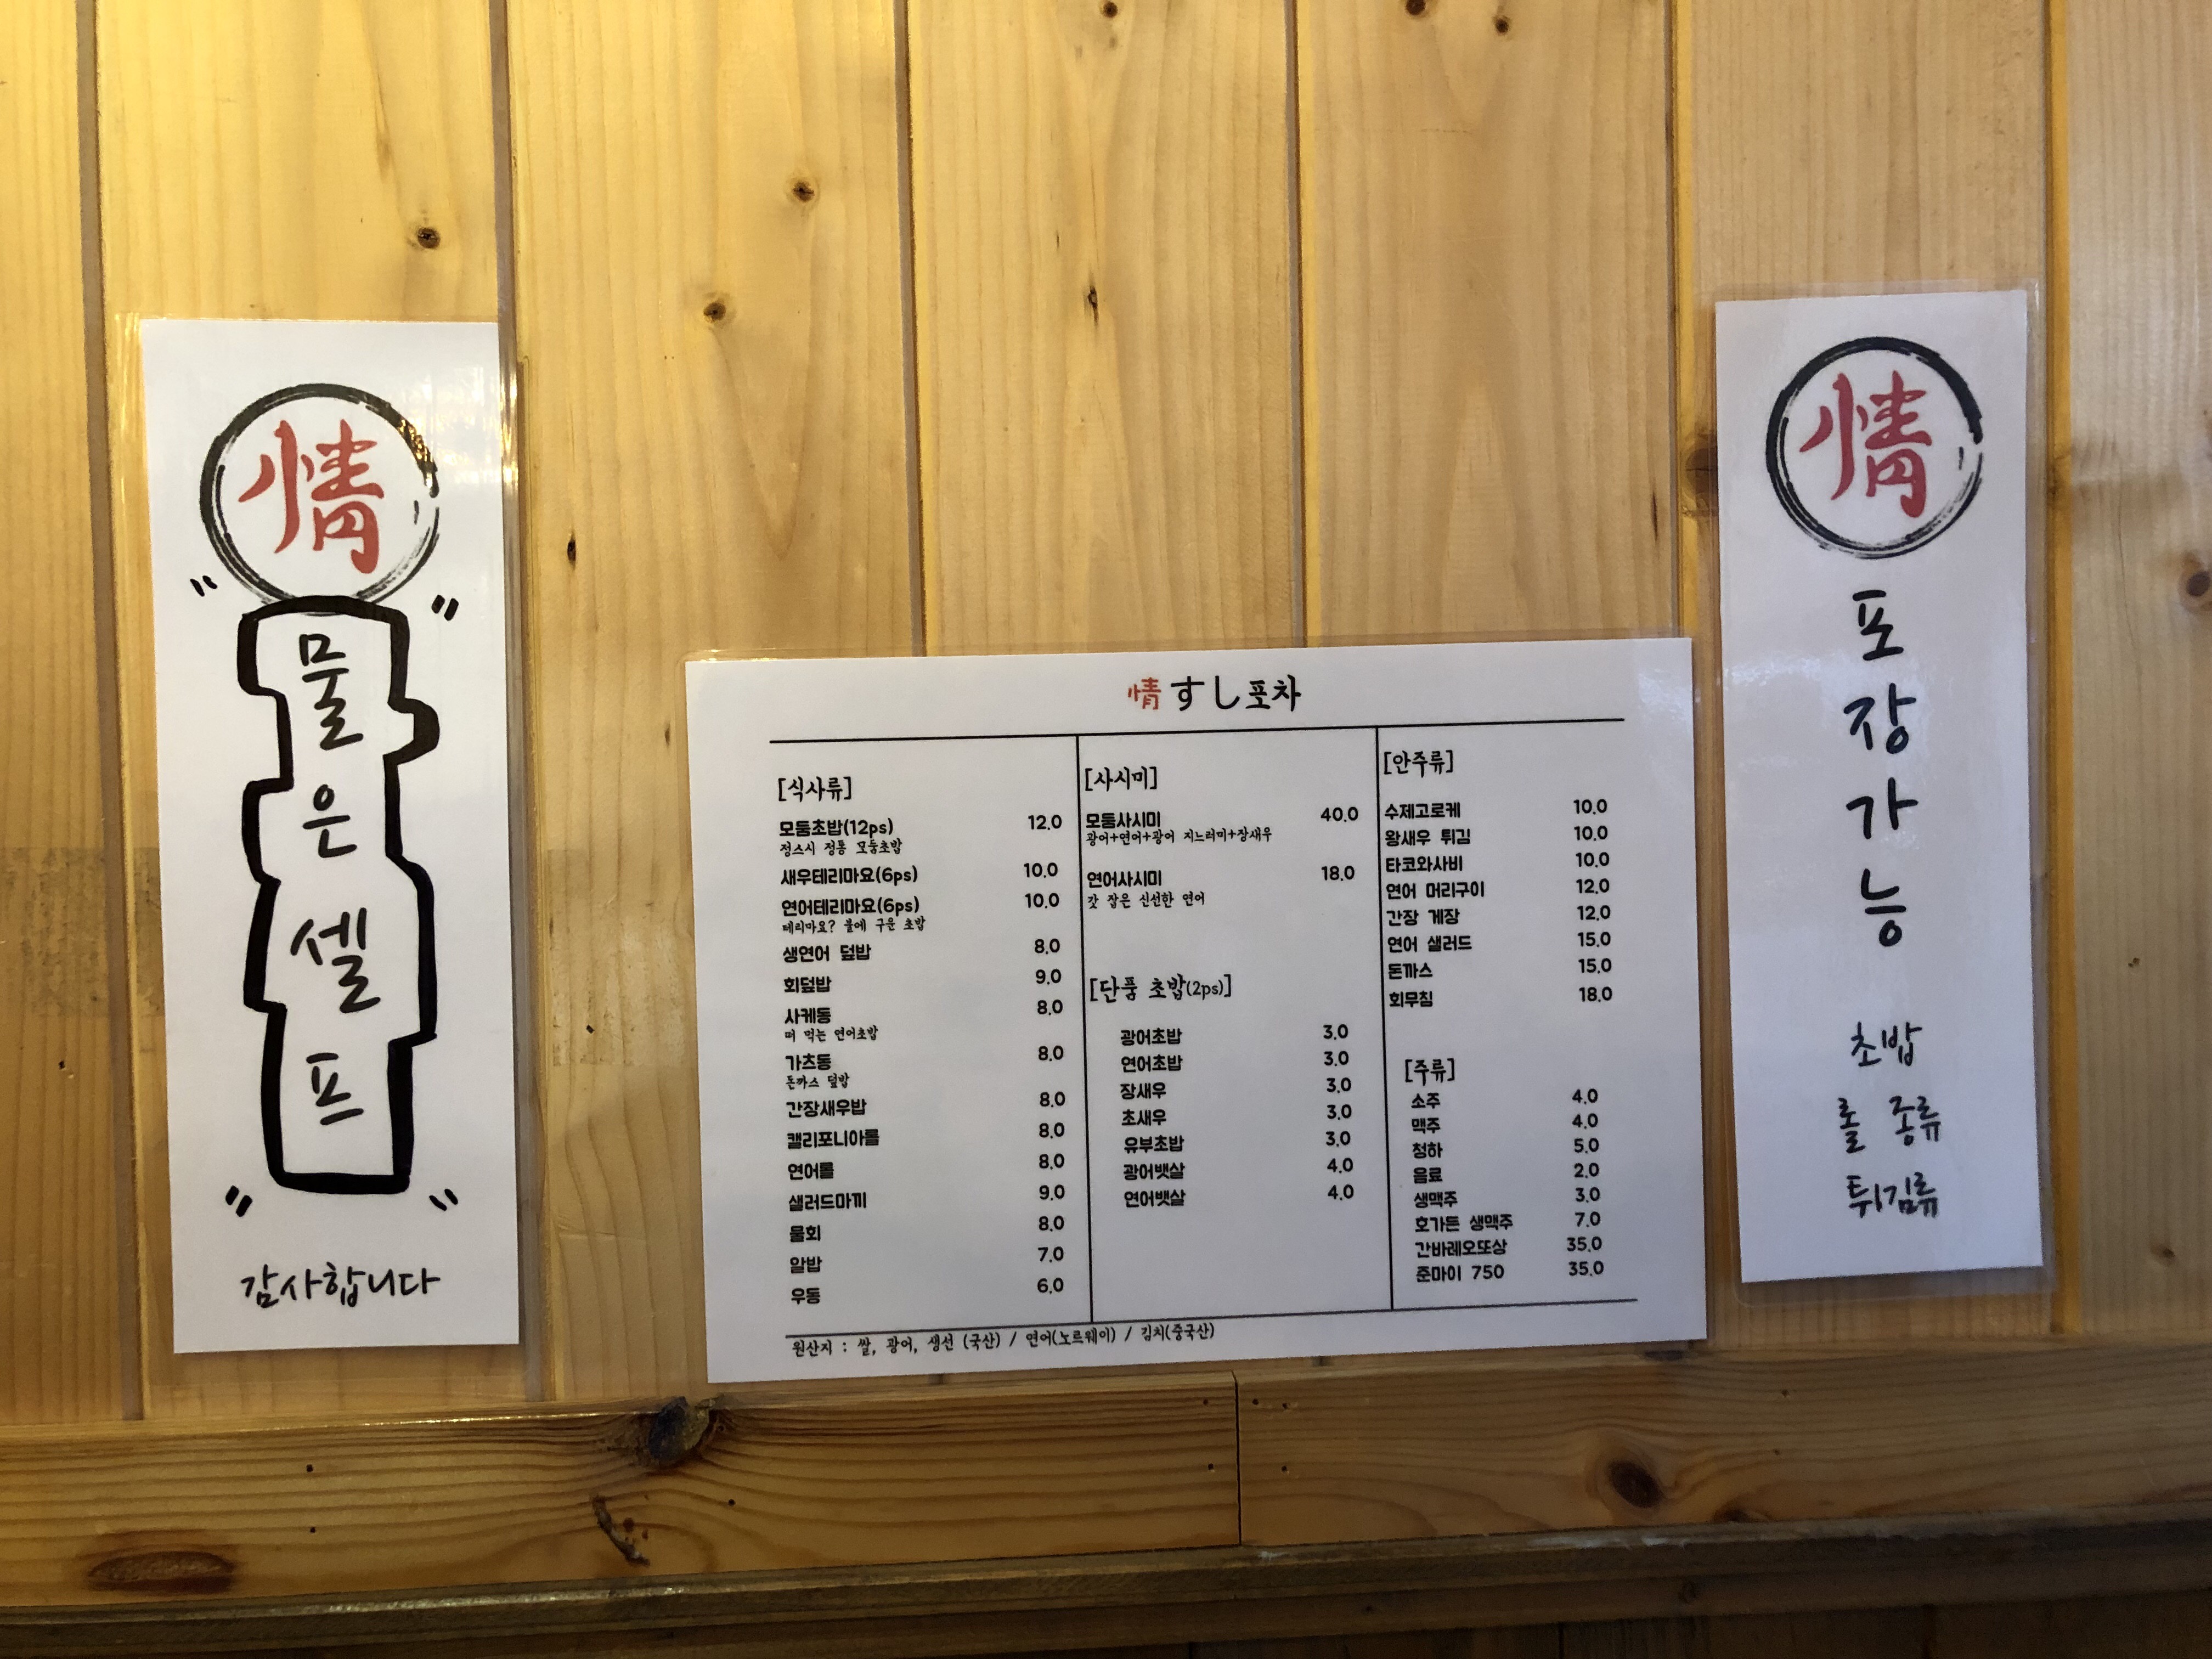 情
"물은셀프"
감사합니다
情すし포차
[식사류]
모둠초밥(12ps) 12.0
정스시 정통 모둠초밥
새우테리마요(6ps) 10.0
연어테리마요(6ps) 10.0
테리마요? 불에 구운 초밥
생연어 덮밥 8.0
회덮밥 9.0
사케동 8.0
떠 먹는 연어초밥
가츠동 8.0
돈까스 덮밥
간장새우밥 8.0
캘리포니아롤 8.0
연어롤 8.0
샐러드마끼 9.0
물회 8.0
알밥 7.0
우동 6.0
[사시미]
모둠사시미 40.0
광어+연어+광어 지느러미+장새우
연어사시미 18.0
갓 잡은 신선한 연어
[단품 초밥(2ps)]
광어초밥 3.0
연어초밥 3.0
장새우 3.0
초새우 3.0
유부초밥 3.0
광어뱃살 4.0
연어뱃살 4.0
[안주류]
수제고로케 10.0
왕새우 튀김 10.0
타코와사비 10.0
연어 머리구이 12.0
간장 게장 12.0
연어 샐러드 15.0
돈까스 15.0
회무침 18.0
[주류]
소주 4.0
맥주 4.0
청하 5.0
음료 2.0
생맥주 3.0
호가든 생맥주 7.0
간바레오또상 35.0
준마이 750 35.0
원산지 : 쌀, 광어, 생선 (국산) / 연어(노르웨이) / 김치(중국산)
情
포장가능
초밥
롤 종류
튀김류